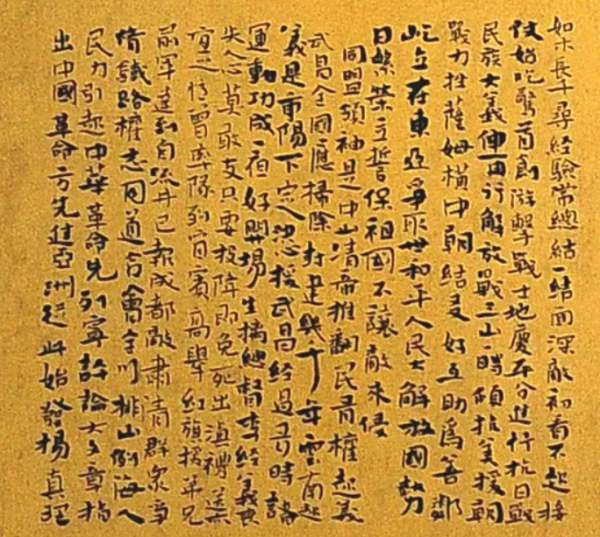 如木長千尋經驗常總結一結一回深敵初看不起接
仗始吃驚首創游擊戰士地廣兵分進行抗日戰
民族大義伸一再行解放戰三山一時傾抗美援朝
戰力挫薩姆橫中朝結友好互助爲善鄰
屹立在東亞爭取世和平人民大解放國勢
日繁榮立誓保祖國不讓敵來侵
同盟領袖是中山清帝推翻民有權起義
武昌全國應掃除封建幾千年雲南起
義是重陽下定決心援武昌經過多時諸
運動功成一夜好開場生擒總督李經羲喪
失人心莫敢支只要投降即免死出滇禮送亦
宜之憶曾率隊到宜賓高舉紅旗援弟兄
前軍達到自流井已報成都敵肅清群衆爭
修鐵路權志同道合會全川排山倒海人
民力引起中華革命先列寧評論大文章指
出中國革命方先進亞洲從此始發揚真理